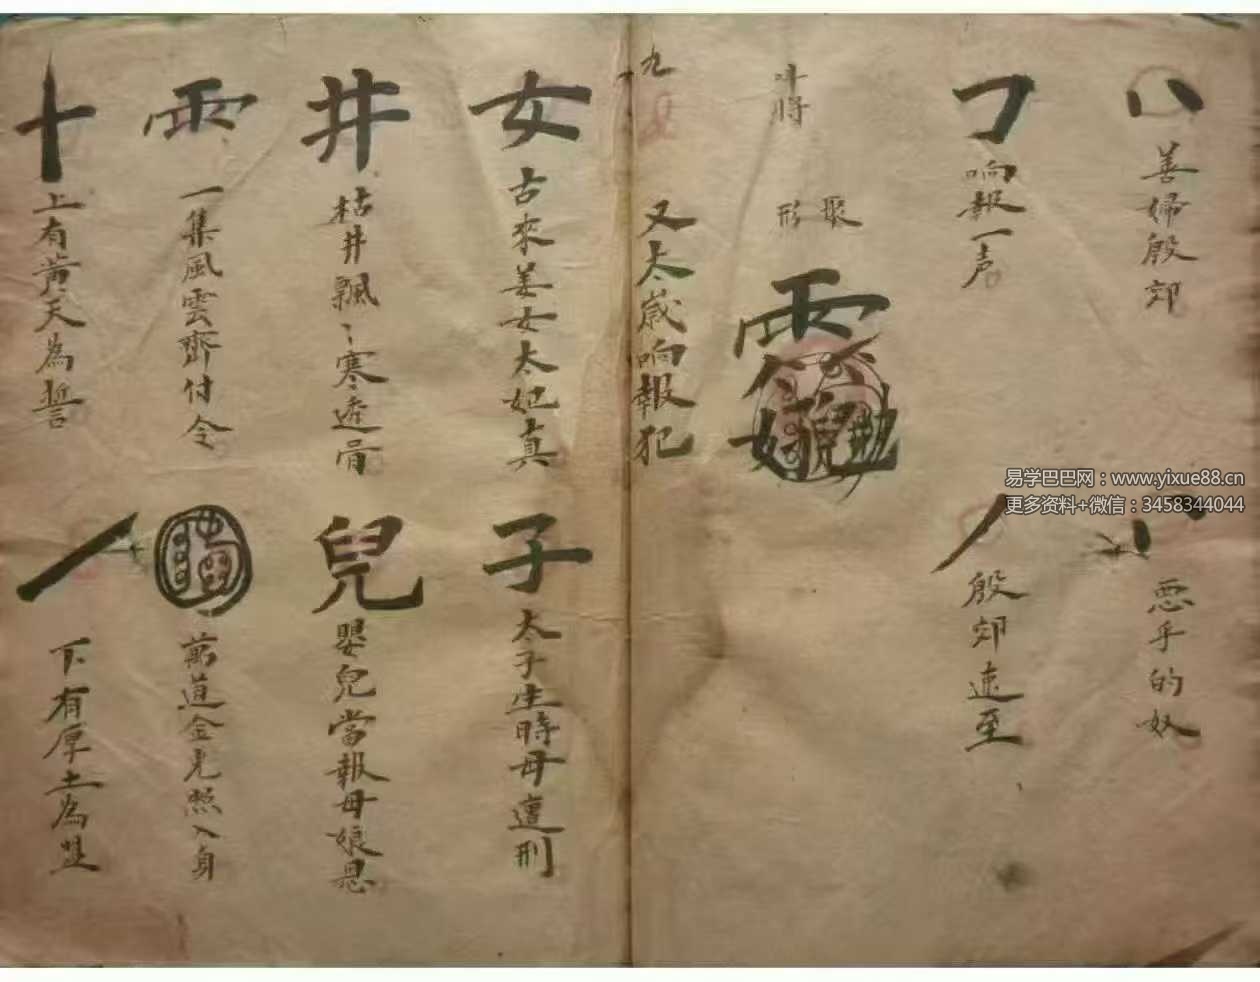 八
善婦殷郊
八
悪乎的奴
㇆
响報一声
丿
殷郊速至
叫將
聚形
九
又太歲响報犯
女
古來姜女太妃真
子
太子生時母遭刑
井
枯井飄〻寒透骨
兒
嬰兒當報母娘恩
雨
一集風雲齊付令
萬道金光照入身
十
上有黄天為誓
一
下有厚土為盟
易学巴巴网：www.yixue88.cn
更多资料+微信：3458344044